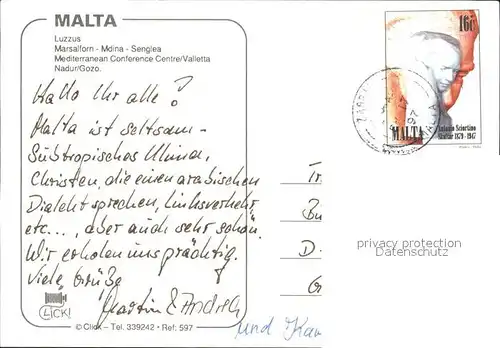 MALTA
Luzzus
Marsalforn - Mdina - Senglea
Mediterranean Conference Centre/Valletta
Nadur/Gozo.
Hallo Ihr alle!
Malta ist seltsam -
Subtropisches Klima,
Christen, die einen arabischen
Dialekt sprechen, Linksverkehr
etc..., aber auch sehr schön.
Wir erholen uns prächtig.
Viele Grüße
Martin &
und
CLICK!
© Click - Tel. 339242 - Ref: 597
16c
MALTA
Antonio Sciortino
Skultur 1879 - 1947
97
privacy protection
Datenschutz